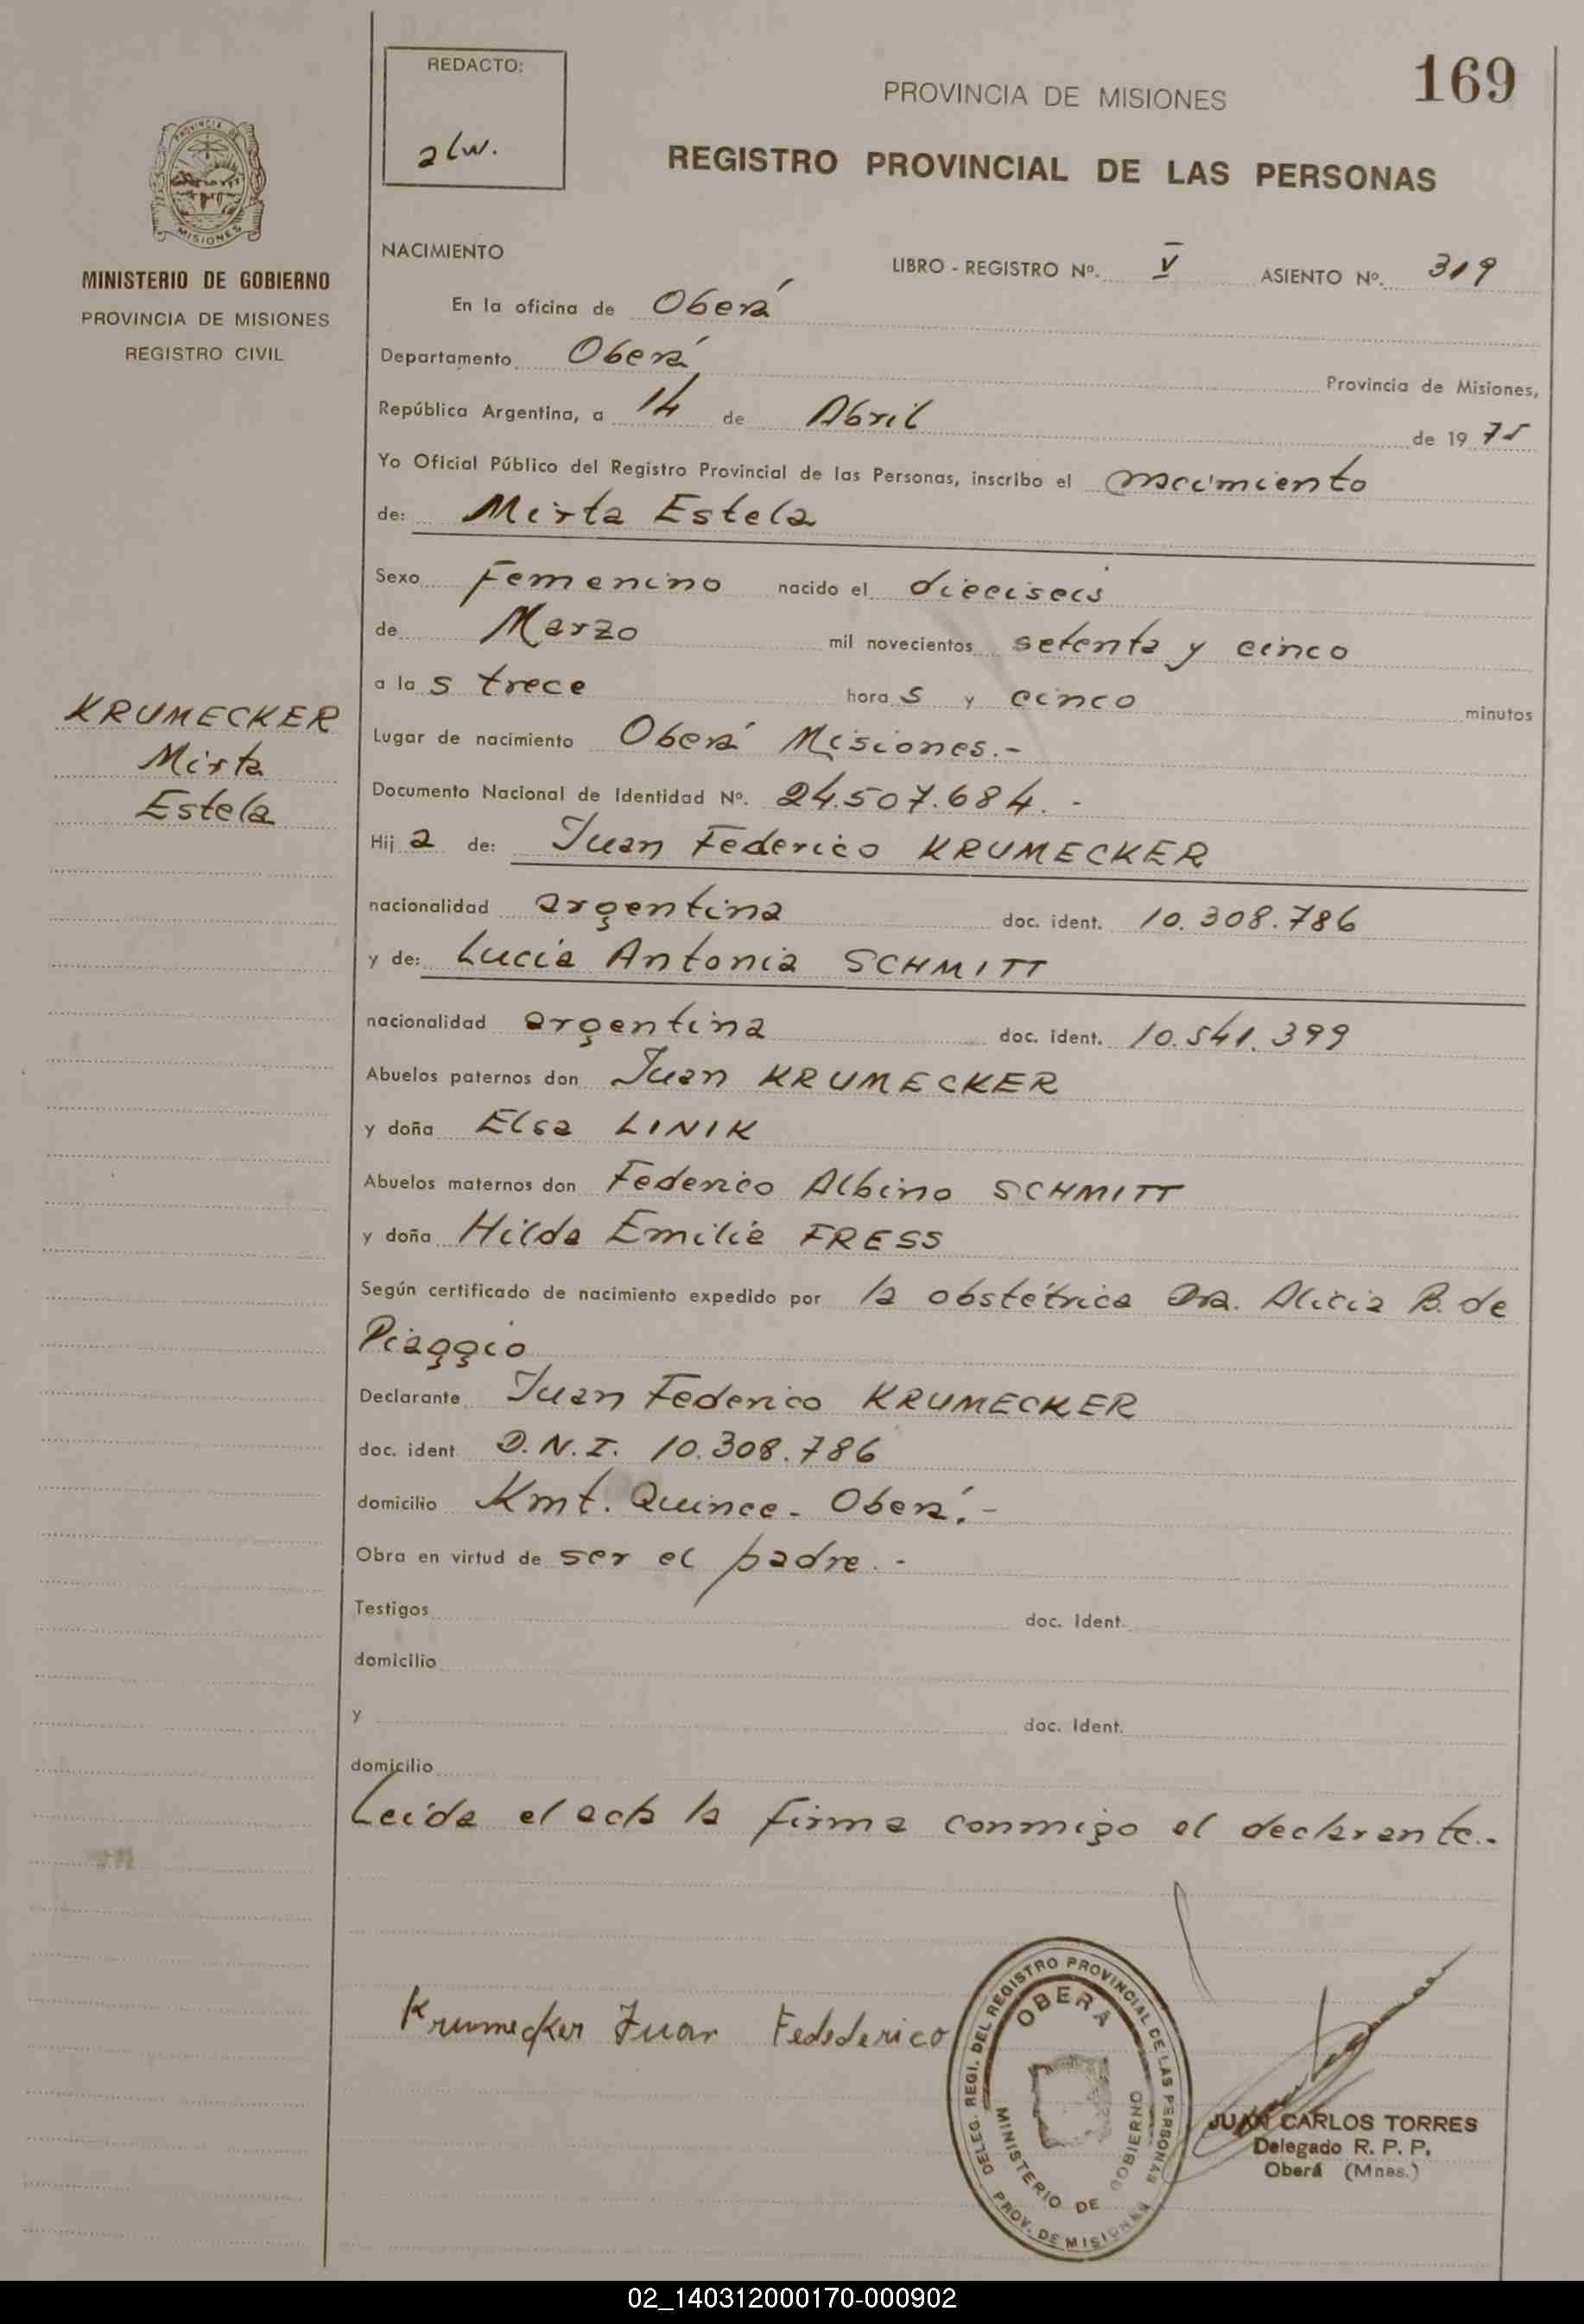 169
REDACTO:
alw.
PROVINCIA DE MISIONES
REGISTRO PROVINCIAL DE LAS PERSONAS
PROVINCIA DE
MISIONES
MINISTERIO DE GOBIERNO
PROVINCIA DE MISIONES
REGISTRO CIVIL
NACIMIENTO
LIBRO - REGISTRO Nº. V ASIENTO Nº. 319
En la oficina de Oberá
Departamento Oberá Provincia de Misiones,
República Argentina, a 14 de Abril de 1975
Yo Oficial Público del Registro Provincial de las Personas, inscribo el nacimiento
de: Mirta Estela
Sexo Femenino nacido el dieciseis
de Marzo mil novecientos setenta y cinco
a las trece horas y cinco minutos
KRUMECKER
Mirta
Estela
Lugar de nacimiento Oberá Misiones.-
Documento Nacional de Identidad Nº. 24.507.684.-
Hija de: Juan Federico KRUMECKER
nacionalidad argentina doc. ident. 10.308.786
y de: Lucia Antonia SCHMITT
nacionalidad argentina doc. ident. 10.541.399
Abuelos paternos don Juan KRUMECKER
y doña Elsa LINIK
Abuelos maternos don Federico Albino SCHMITT
y doña Hilda Emilia FRESS
Según certificado de nacimiento expedido por la obstétrica Dra. Alicia B. de
Piaggio
Declarante Juan Federico KRUMECKER
doc. ident D.N.I. 10.308.786
domicilio Kmt. Quince - Oberá.-
Obra en virtud de ser el padre.-
Testigos doc. Ident.
domicilio
y doc. Ident.
domicilio
Leida el acta la firma conmigo el declarante.-
Krumecker Juan Fedederico
DELEG. REGI. DEL REGISTRO PROVINCIAL DE LAS PERSONAS
OBERA
MINISTERIO DE GOBIERNO
PROV. DE MISIONES
JUAN CARLOS TORRES
Delegado R. P. P.
Oberá (Mnes.)
02_140312000170-000902